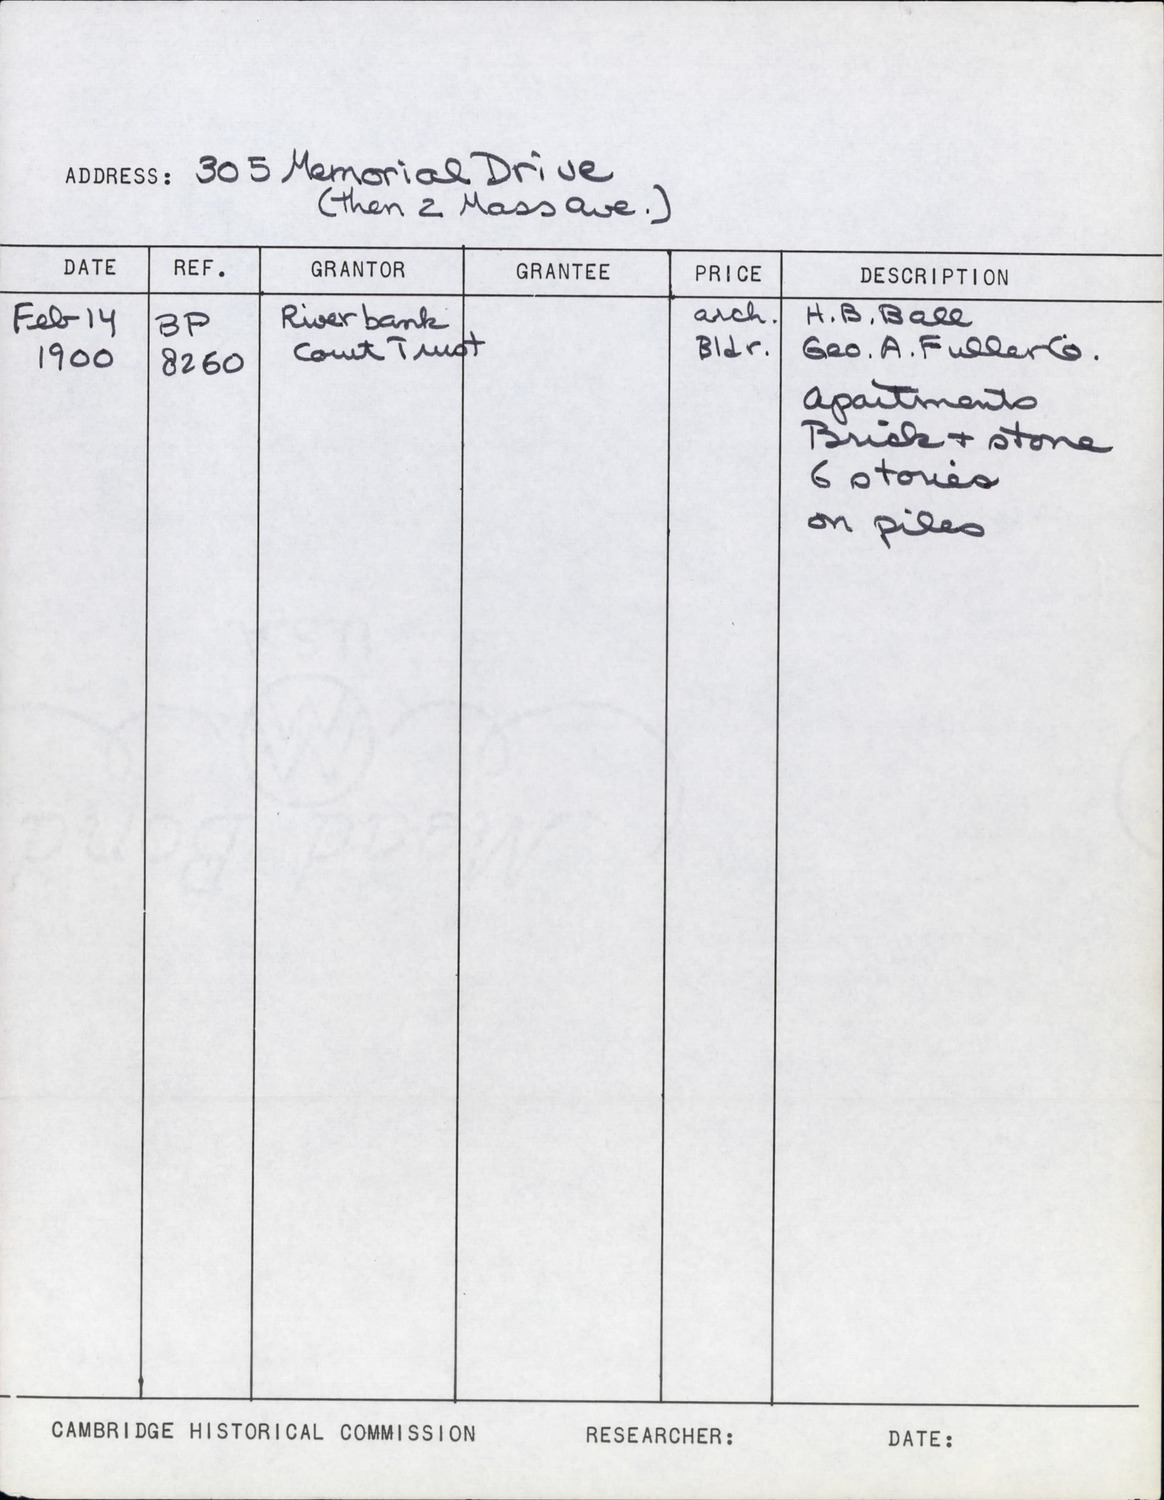 ADDRESS: 305 Memorial Drive
(then 2 Mass Ave.)
DATE REF. GRANTOR GRANTEE PRICE DESCRIPTION
Feb 14 BP Riverbank arch. H.B. Ball
1900 8260 Court Trust Bldr. Geo. A. Fuller Co.
Apartments
Brick + stone
6 stories
on piles
CAMBRIDGE HISTORICAL COMMISSION RESEARCHER: DATE: